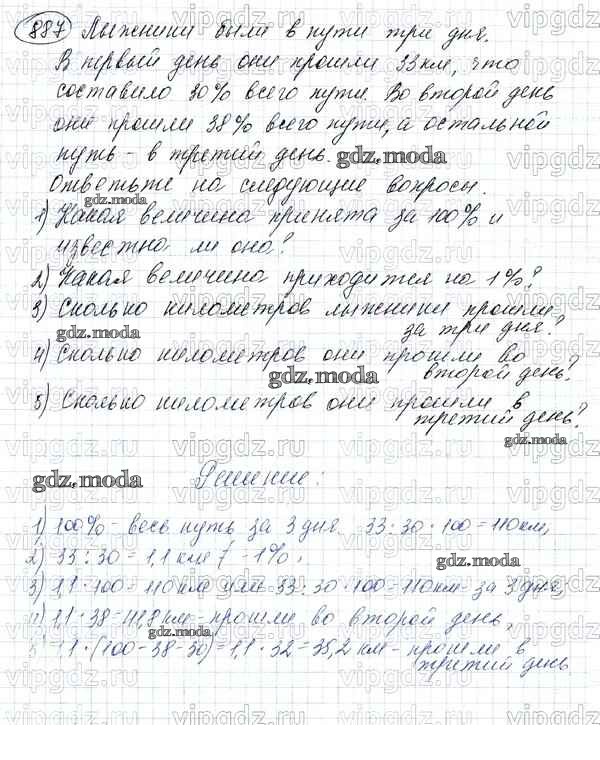 887 Лыжники были в пути три дня.
В первый день они прошли 33 км, что
составило 30% всего пути. Во второй день
они прошли 38% всего пути, а остальной
путь - в третий день. gdz.moda
Ответьте на следующие вопросы.
gdz.moda
1) Какая величина принята за 100% и
известна ли она?
2) Какая величина приходится на 1%?
3) Сколько километров лыжники прошли
gdz.moda за три дня?
4) Сколько километров они прошли во
gdz.moda второй день?
5) Сколько километров они прошли в
третий день?
gdz.moda
gdz.moda Решение:
1) 100% - весь путь за 3 дня 33:30·100=110км,
2) 33:30=1,1 км - 1%,
gdz.moda
3) 1,1·100=110км или 33:30·100=110км- за 3 дня,
4) 1,1·38=41,8 км - прошли во второй день,
gdz.moda
5) 1,1·(100-38-30)=1,1·32=35,2 км - прошли в
третий день
vipgdz.ru